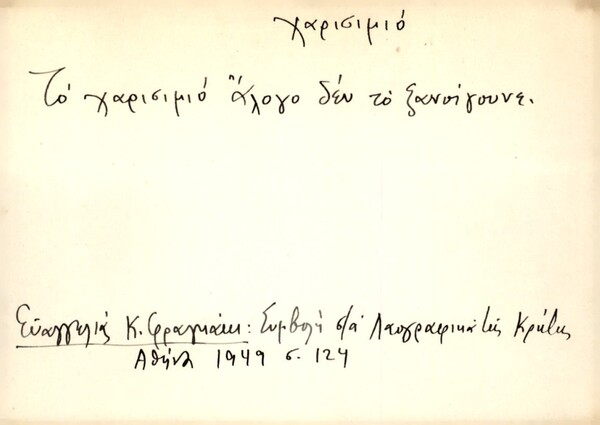 χαρισιμιό
Τό χαρισιμιό ἄλογο δέν τό ξανοίγουνε.
Εὐαγγελίας Κ. Φραγκάκι: Συμβολή στά Λαογραφικά τῆς Κρήτης
Αθήνα 1949 σ. 124